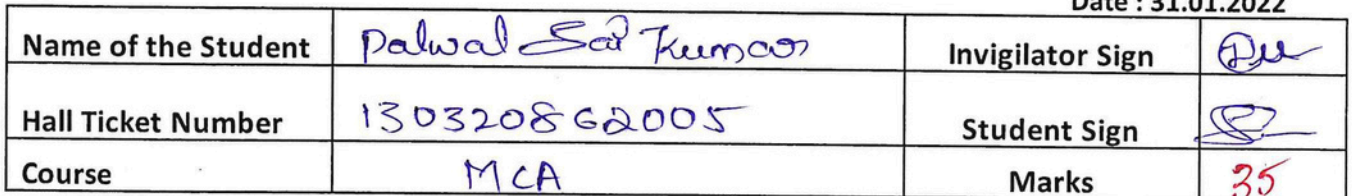 Date : 31.01.2022
Name of the Student Palwal Sai Kumar Invigilator Sign
Hall Ticket Number 130320862005 Student Sign
Course MCA Marks 35